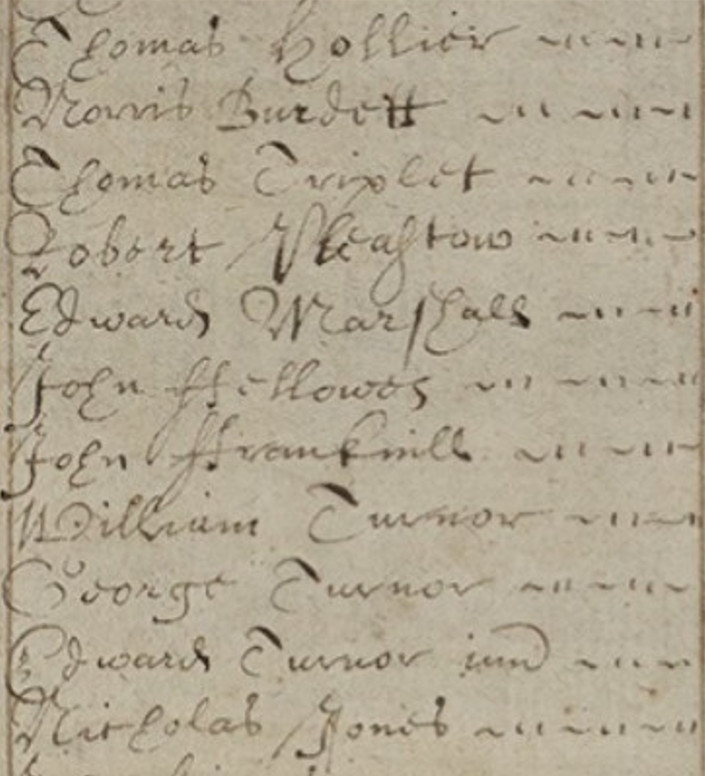 Thomas Hollier
Norris Burdett
Thomas Triplet
Robert Pleastow
Edward Marshall
John ffellowes
John ffranknill
William Turnor
George Turnor
Edward Turnor iun
Nicholas Jones